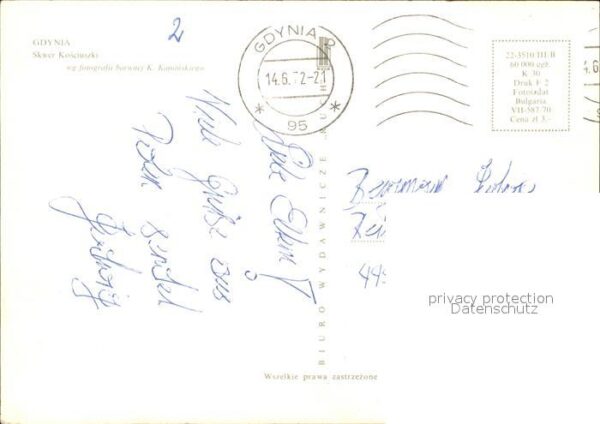 GDYNIA
Skwer Kościuszki
wg fotografii barwnej K. Kamińskiego
2
GDYNIA 2
14.6.72-21
* 95 *
22-3510/III-R
60 000 egz.
K 30
Druk F 2
Fotoizdat
Bulgaria
VII-587/70
Cena zł 3,-
Liebe Eltern!
Viele Grüße aus
Polen sendet
BIURO WYDAWNICZE „RUCH”
449
privacy protection
Datenschutz
Wszelkie prawa zastrzeżone